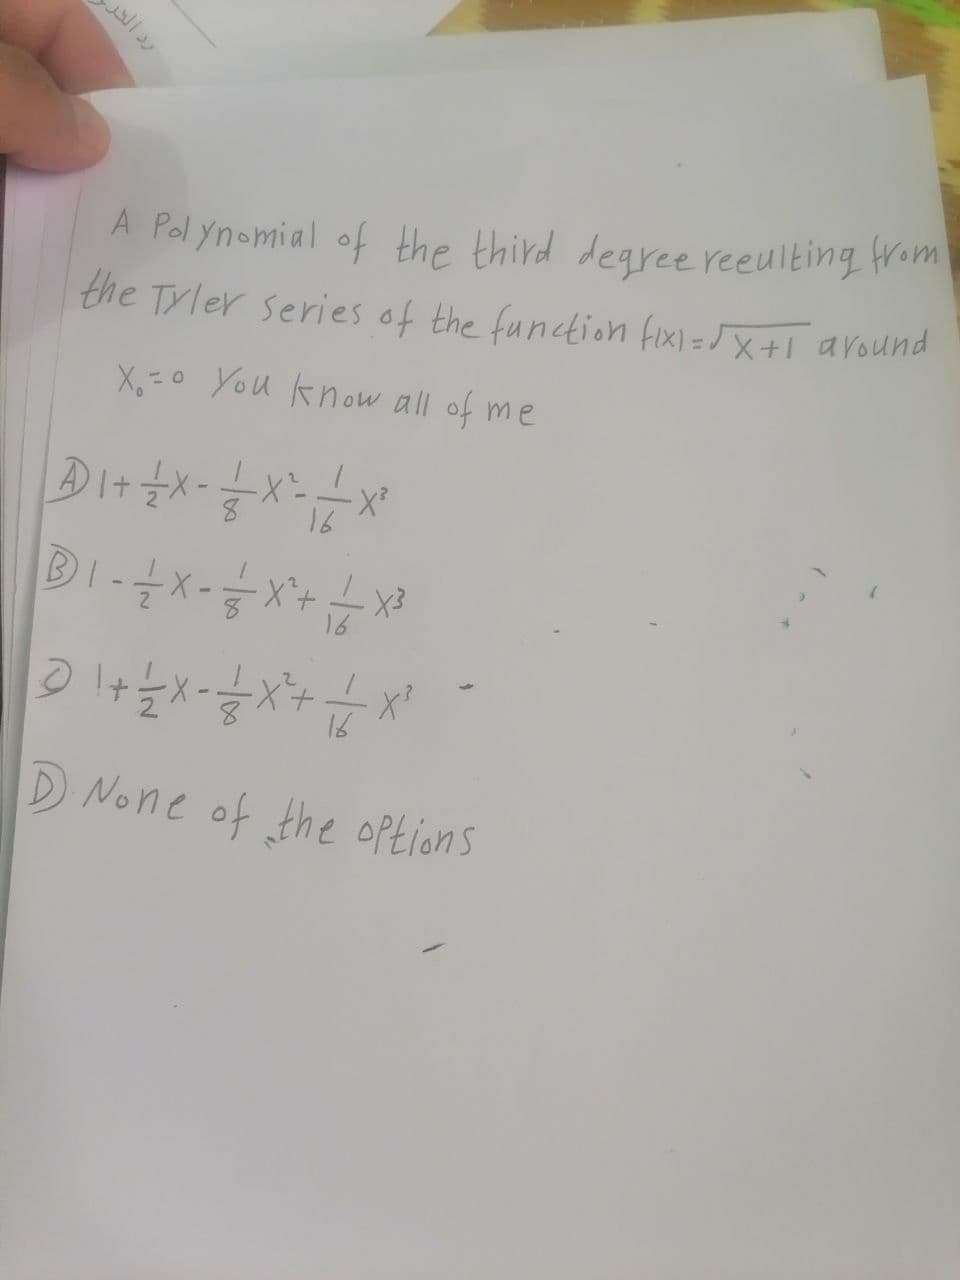 رد
A Polynomial of the third degree reeulting from
the Tyler series of the function f(x)=√x+1 around
X₀=0 You know all of me
A) 1+1/2x-1/8x²-1/16x³
B) 1-1/2x-1/8x²+1/16x³
C) 1+1/2x-1/8x²+1/16x³
D) None of the options